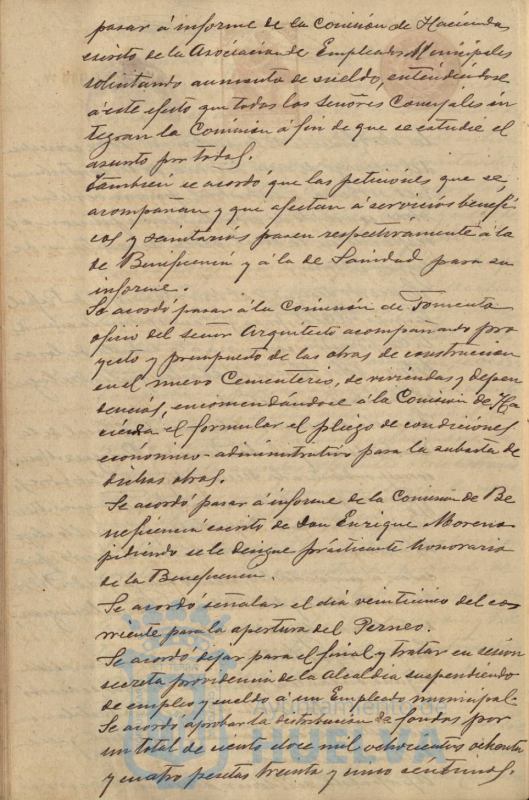 pasar á informe de la Comisión de Hacienda
escrito de la Asociación de Empleados Municipales
solicitando aumento de sueldo, entendiéndose
á este efecto que todos los señores Concejales in
tegran la Comisión á fin de que se estudie el
asunto por todos.
También se acordó que las peticiones que se
acompañan y que afectan á servicios benefi
cos y sanitarios pasen respectivamente á la
de Beneficencia y á la de Sanidad para su
informe.
Se acordó pasar á la Comisión de Fomento
oficio del señor Arquitecto acompañando pro
yecto y presupuesto de las obras de construcción
en el nuevo Cementerio, de viviendas y depen
dencias, encomendándose á la Comisión de Ha
cienda el formular el pliego de condiciones
económico-administrativo para la subasta de
dichas obras.
Se acordó pasar á informe de la Comisión de Be
neficencia escrito de don Enrique Moreno
pidiendo se le designe practicante honorario
de la Beneficencia.
Se acordó señalar el día veinticinco del co
rriente para la apertura del Perneo.
Se acordó dejar para el final y tratar en sesión
secreta providencia de la Alcaldía suspendiendo
de empleo y sueldo á un Empleado municipal.
Se acordó aprobar la distribución de fondos por
un total de ciento doce mil ochocientos ochenta
y cuatro pesetas treinta y uno céntimos.
Ayuntamiento de
HUELVA